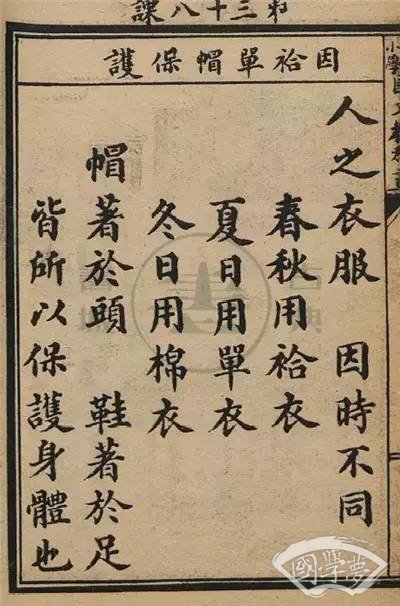 第三十八課
因袷單帽保護
人之衣服 因時不同
春秋用袷衣
夏日用單衣
冬日用棉衣
帽著於頭 鞋著於足
皆所以保護身體也
國學夢